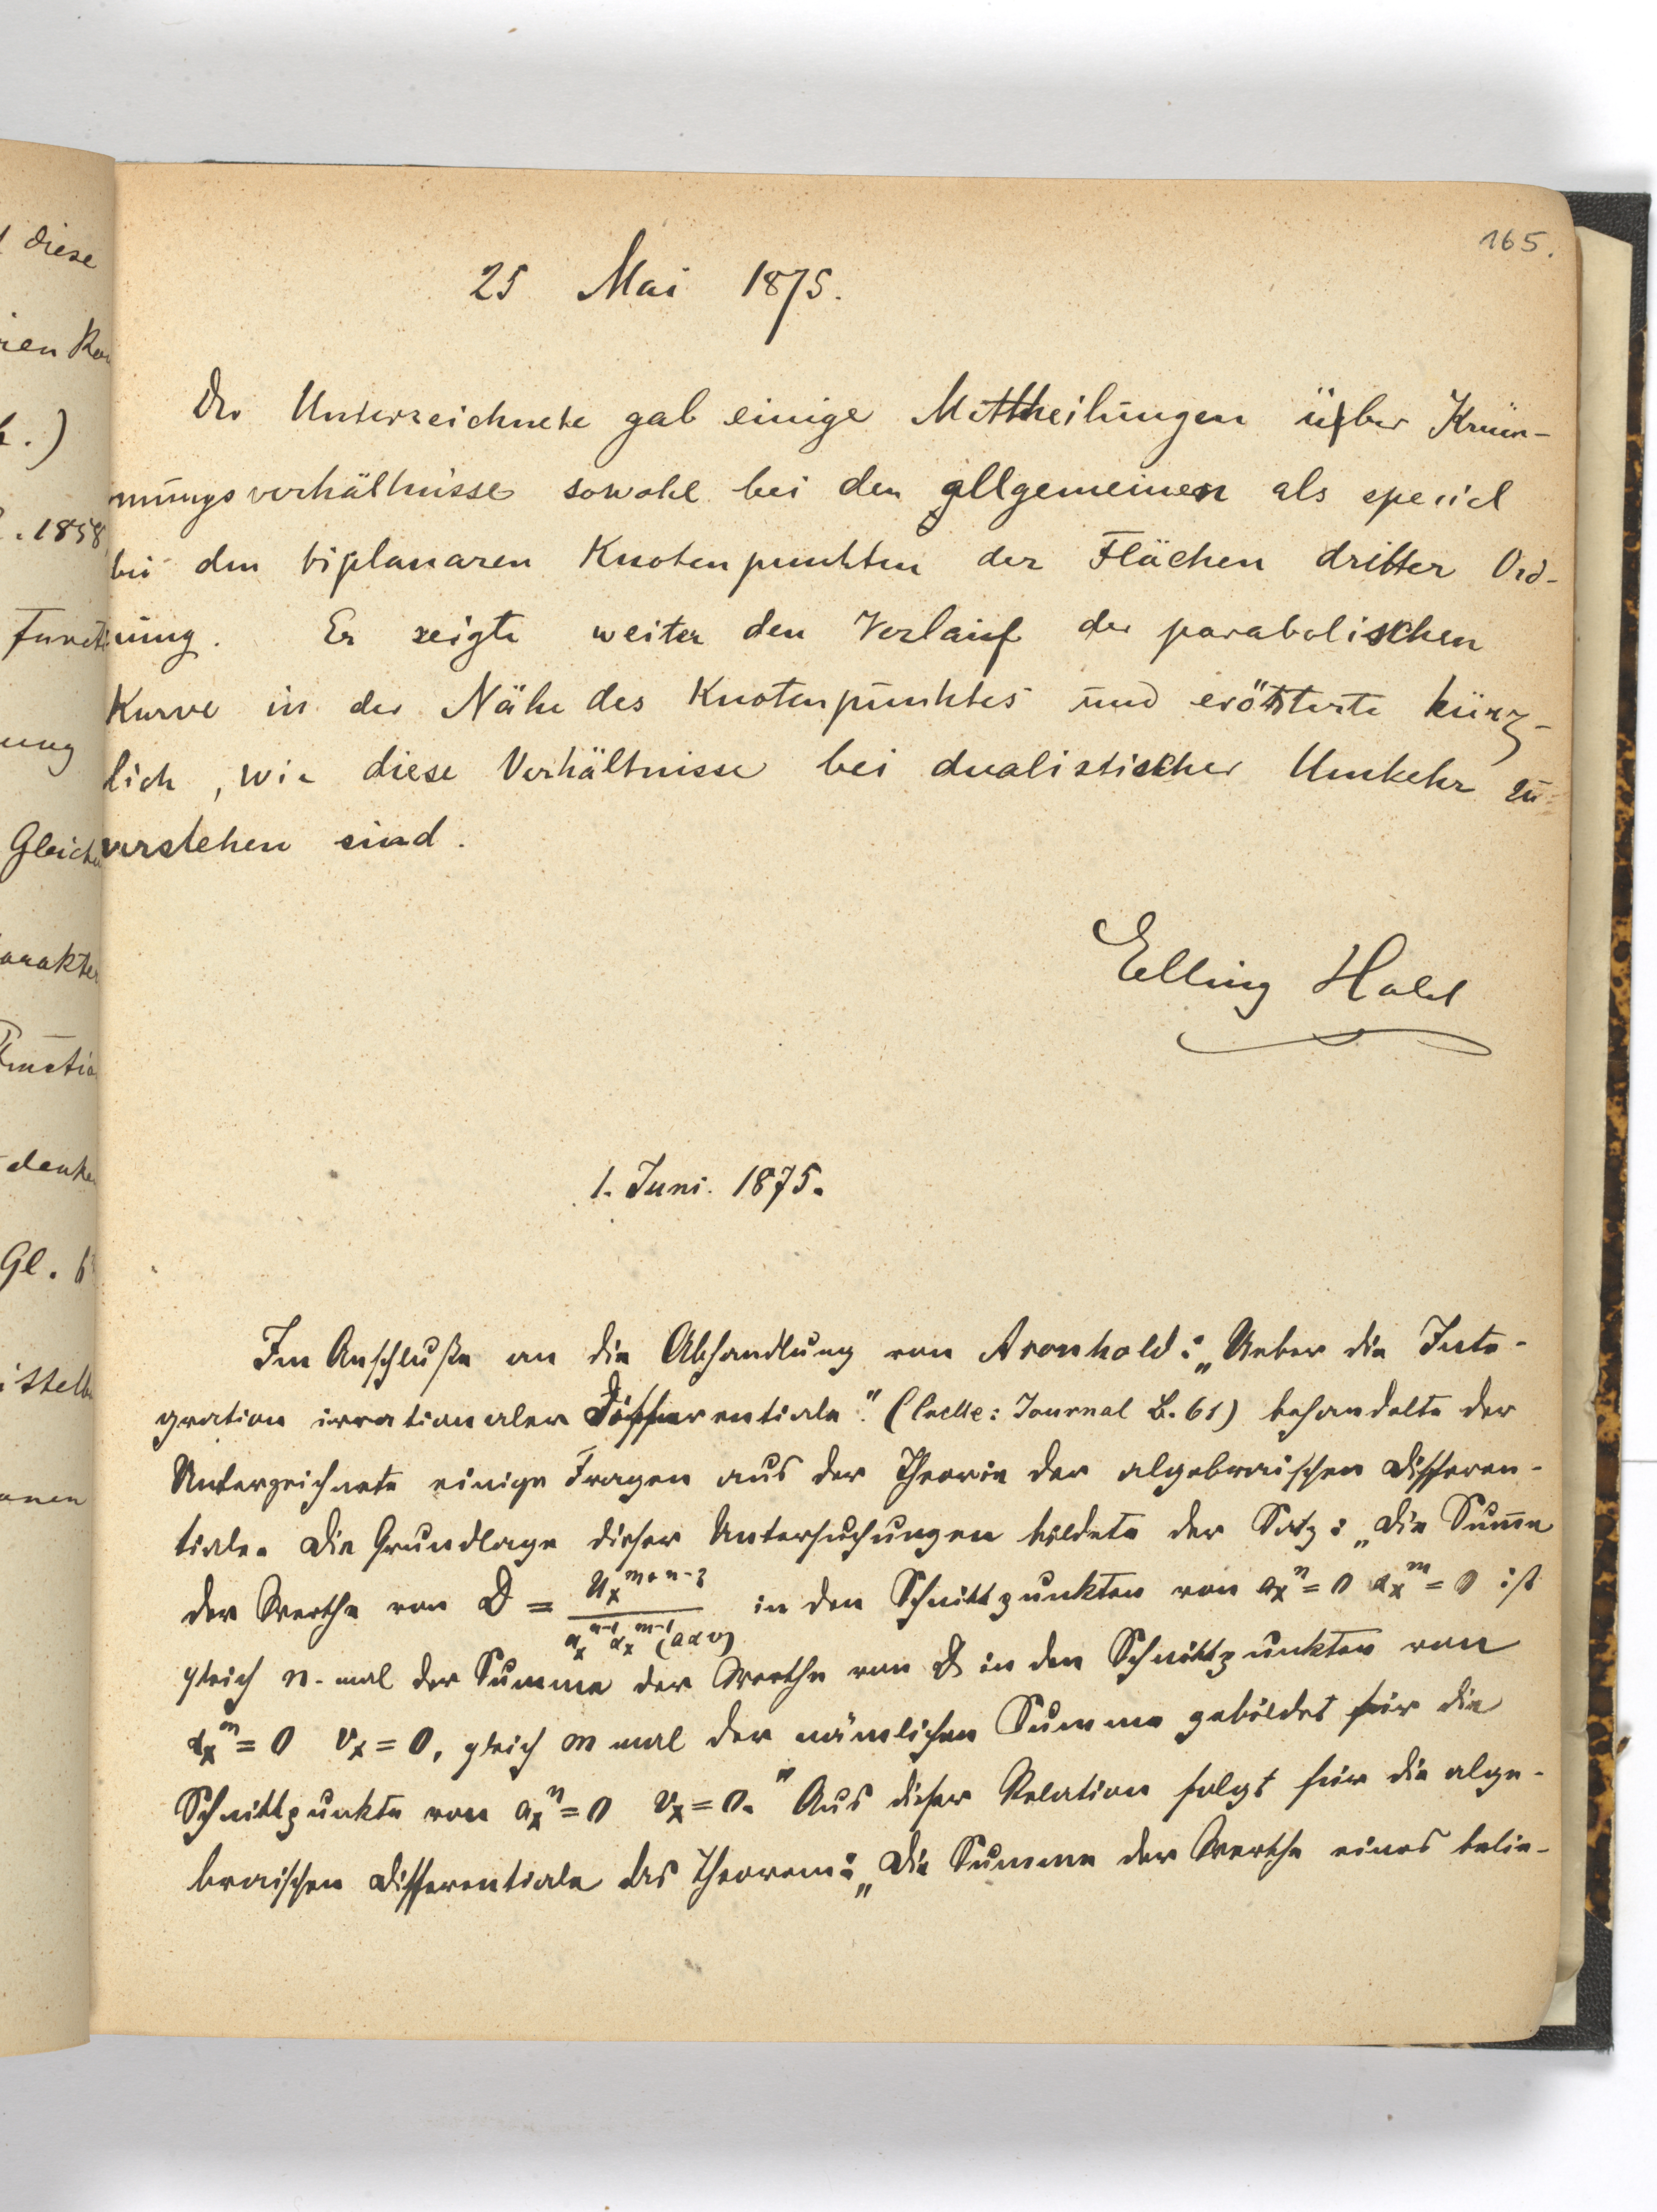 165.
25 Mai 1875.
Der Unterzeichnete gab einige Mittheilungen über Krüm-
mungsverhältnisse sowohl bei den allgemeinen als speciel
bei den biplanaren Knotenpunkten der Flächen dritter Ord-
nung. Er zeigte weiter den Verlauf der parabolischen
Kurve in der Nähe des Knotenpunktes und erörterte kürz-
lich, wie diese Verhältnisse bei dualistischer Umkehr zu
verstehen sind.
Elling Holst
1. Juni. 1875.
Im Anschluße an die Abhandlung von Aronhold: „Ueber die Inte-
gration irrationaler Differentiale." (Crelle: Journal B. 61) behandelte der
Unterzeichnete einige Fragen aus der Theorie der algebraischen Differen-
tiale. Die Grundlage dieser Untersuchungen bildete der Satz: „Die Summe
der Werthe von D = U_x^{m+n-3} / a_x^{n-1} α_x^{m-1} (aαv) in den Schnittpunkten von a_x^n = 0 α_x^m = 0 ist
gleich n-mal der Summe der Werthe von D in den Schnittpunkten von
α_x^m = 0 v_x = 0, gleich m mal der nämlichen Summe gebildet für die
Schnittpunkte von a_x^n = 0 v_x = 0." Aus dieser Relation folgt für die alge-
braischen Differentiale das Theorem: „Die Summe der Werthe eines belie-
diese
. 1858
Gl. 6